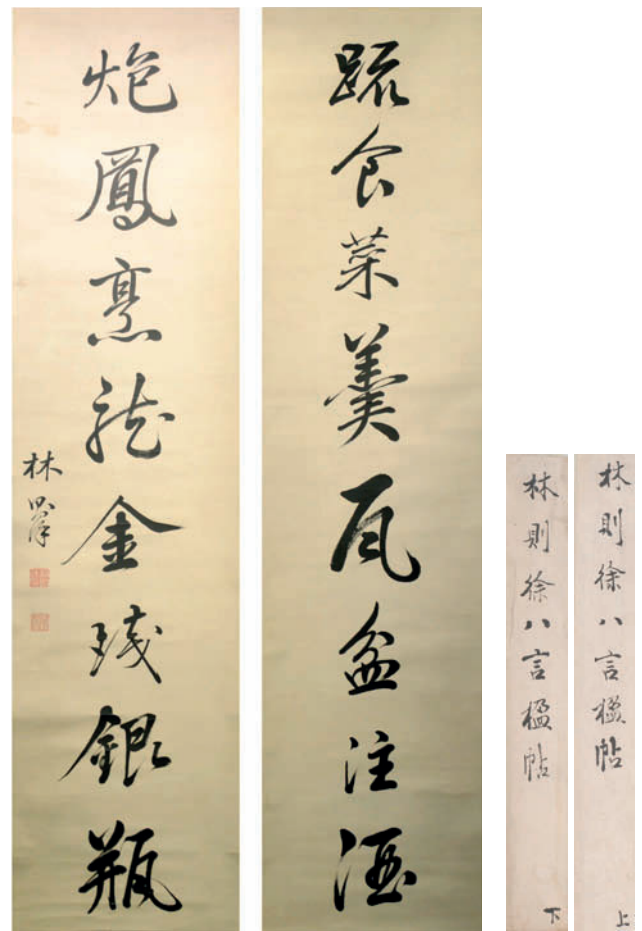 䟽食菜羹瓦盆注酒
炮鳳烹龍金琖銀瓶
林則徐
林則徐八言楹帖
上
林則徐八言楹帖
下